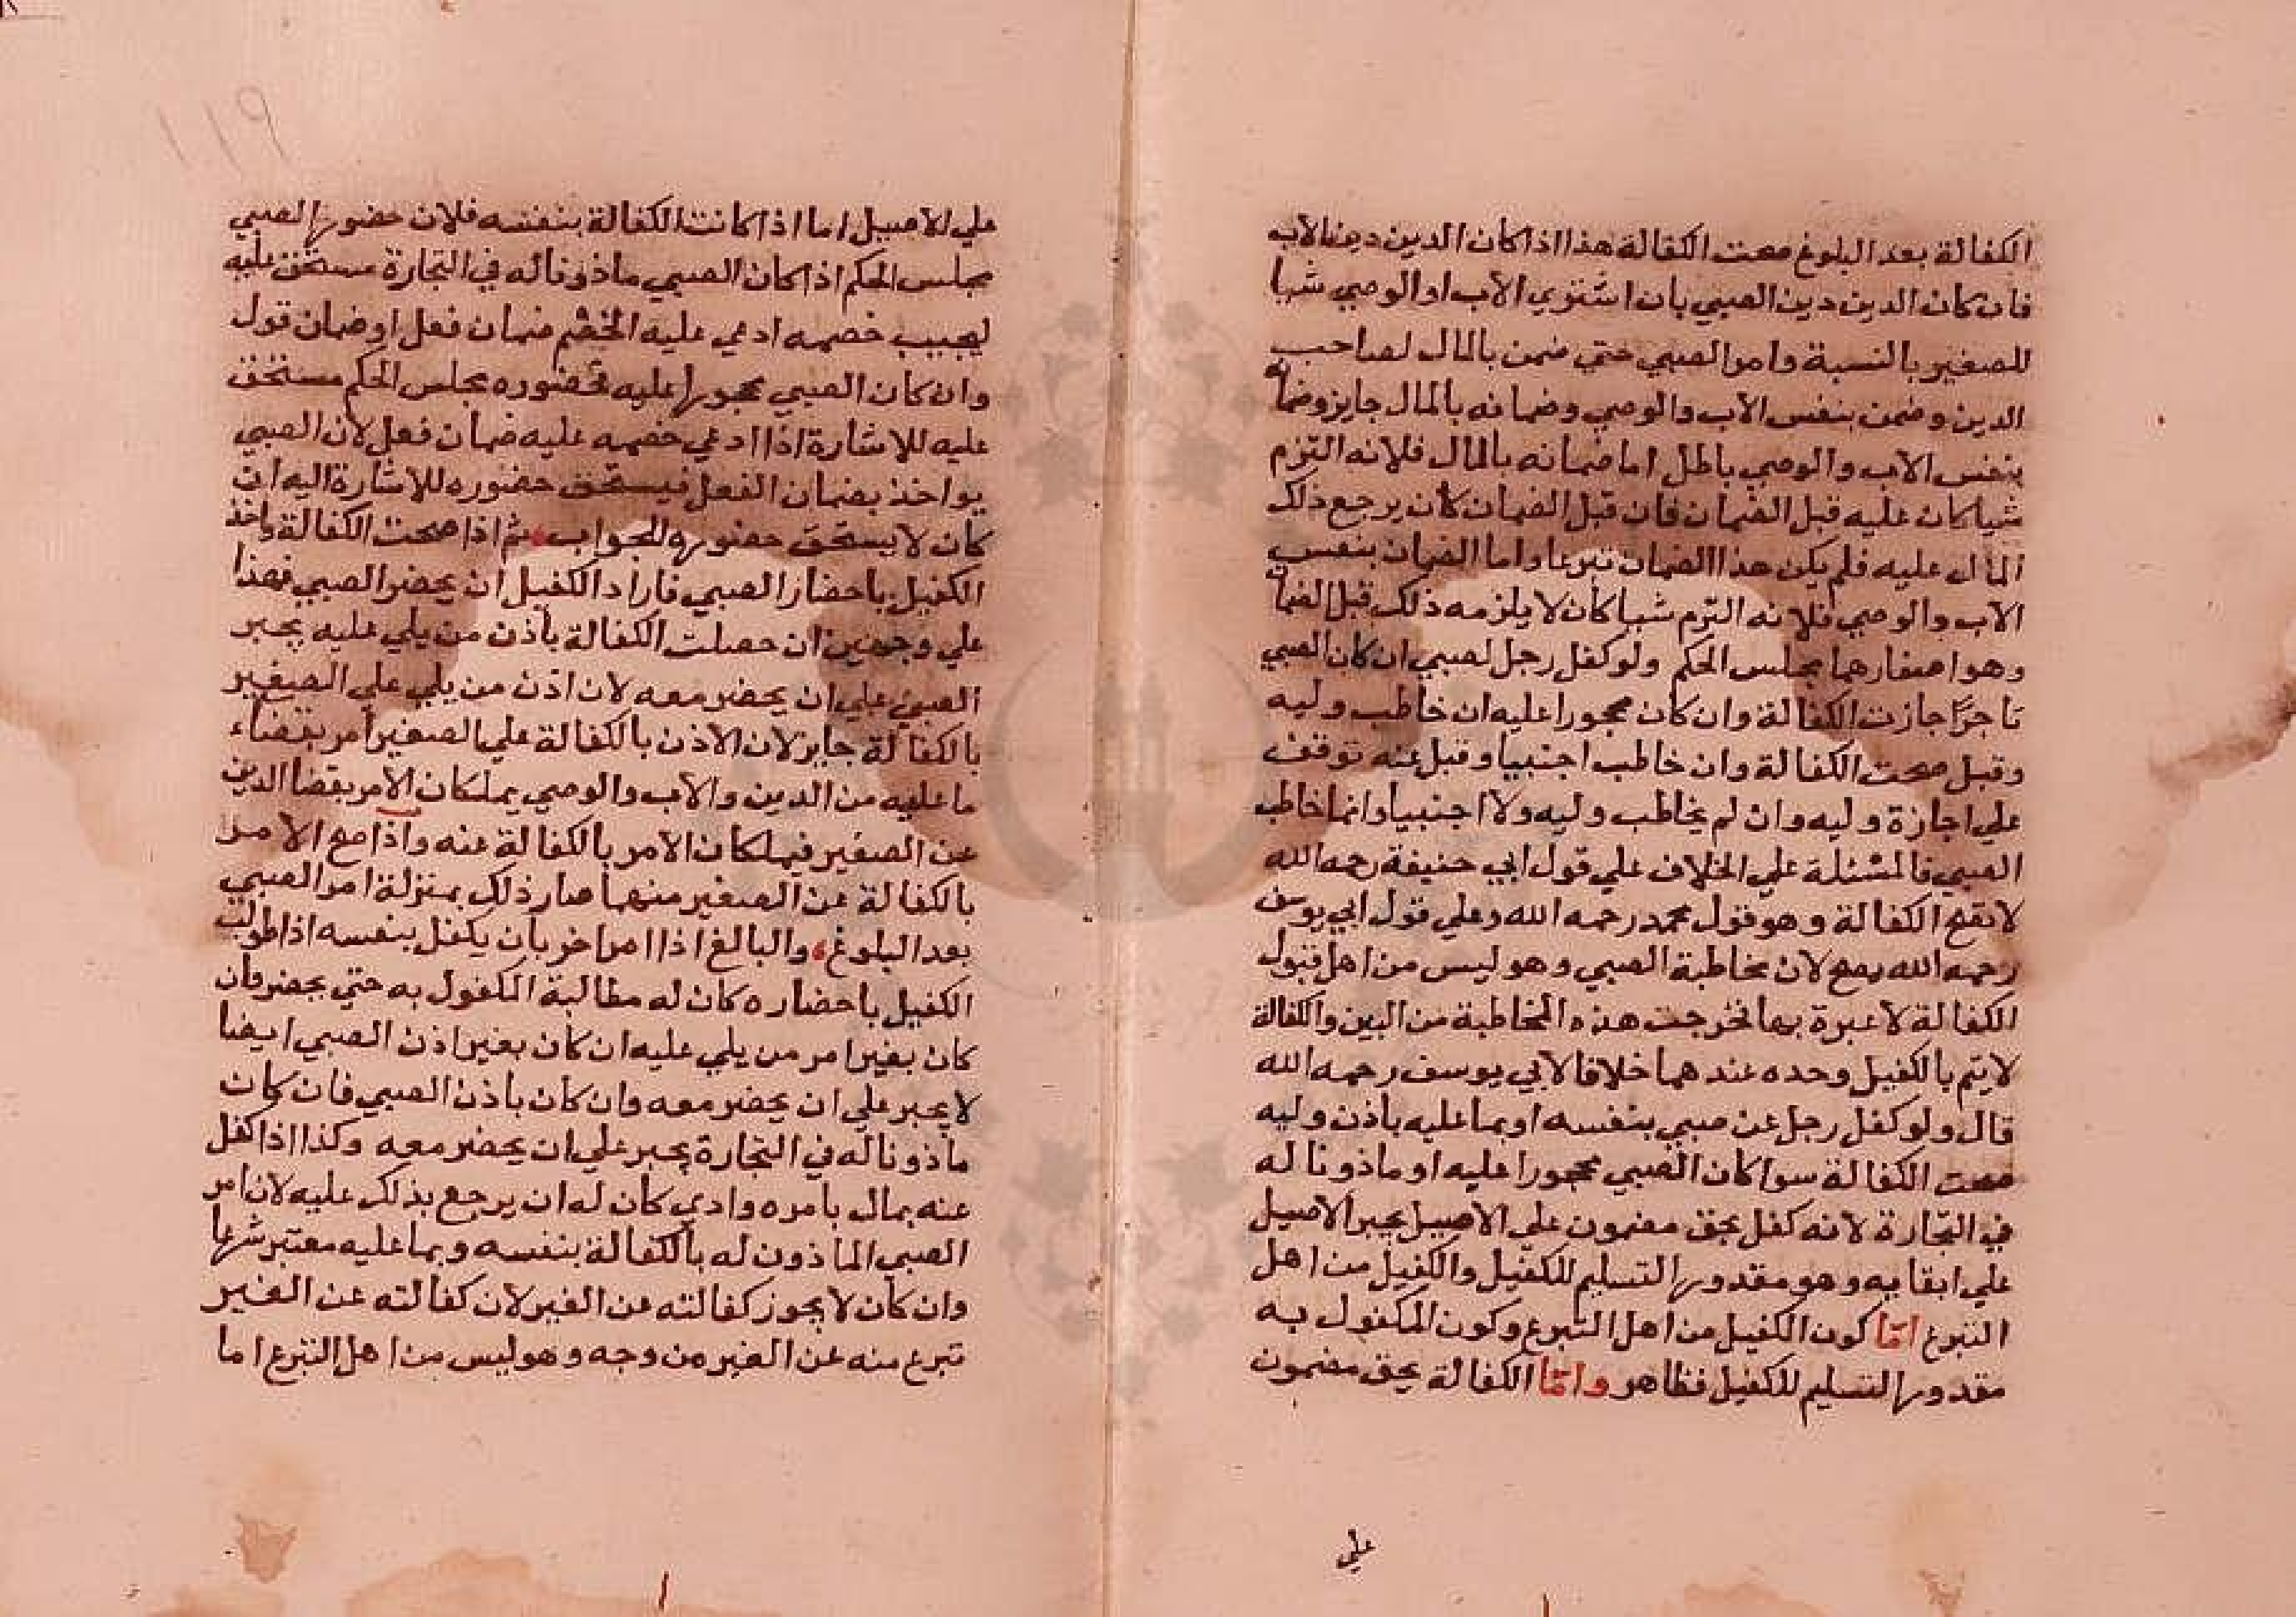 الكفالة بعد البلوغ صحت الكفالة هذا اذا كان الدين دين الاب
فان كان الدين دين الصبي بان اشتري الاب او الوصي شيا
للصغير بالنسية وامر الصبي حتي ضمن بالمال لصاحب
الدين وضمن بنفس الاب والوصي وضمانه بالمال جايز وضمانه
بنفس الاب والوصي باطل اما ضمانه بالمال فلانه التزم
شيا كان عليه قبل الضمان فان قبل الضمان كان يرجع ذلك
المال عليه فلم يكن هذا الضمان تبرعا واما الضمان بنفس
الاب والوصي فلانه التزم شيا كان لا يلزمه ذلك قبل الضمان
وهو احضارهما مجلس الحكم ولو كفل رجل لصبي ان كان الصبي
تاجرًا جازت الكفالة وان كان محجورا عليه ان خاطب وليه
وقبل صحت الكفالة وان خاطب اجنبيا وقبل عنه توقف
علي اجازة وليه وان لم يخاطب وليه ولا اجنبيا وانما خاطب
الصبي فالمسئلة علي الخلاف علي قول ابي حنيفة رحمه الله
لا تقع الكفالة وهو قول محمد رحمه الله وعلي قول ابي يوسف
رحمه الله يصح لان مخاطبة الصبي وهو ليس من اهل قبول
الكفالة لا عبرة بها فخرجت هذه المخاطبة من البين والكفالة
لا يتم بالكفيل وحده عندهما خلافا لابي يوسف رحمه الله
قال ولو كفل رجل عن صبي بنفسه او بما عليه باذن وليه
صحت الكفالة سوا كان الصبي محجورا عليه او ماذونا له
في التجارة لانه كفل بحق مضمون علي الاصيل يجبر الاصيل
علي ابقايه وهو مقدور التسليم للكفيل والكفيل من اهل
التبرع امّا كون الكفيل من اهل التبرع وكون المكفول به
مقدور التسليم للكفيل فظاهر وامّا الكفالة بحق مضمون
علي
١١٩
علي الاصيل اما اذا كانت الكفالة بنفسه فلان حضور الصبي
مجلس الحكم اذا كان الصبي ماذونا له في التجارة مستحق عليه
ليجيب خصمه ادعي عليه الخصم ضمان فعل او ضمان قول
وان كان الصبي محجورا عليه فحضوره مجلس الحكم مستحق
عليه للاشارة اذا ادعي خصمه عليه ضمان فعل لان الصبي
يواخذ بضمان الفعل فيستحق حضوره للاشارة اليه ان
كان لا يستحق حضوره للجواب ثم اذا صحت الكفالة واخذ
الكفيل باحضار الصبي فاراد الكفيل ان يحضر الصبي فهذا
علي وجهين ان حصلت الكفالة باذن من يلي عليه يجبر
الصبي علي ان يحضر معه لان اذن من يلي علي الصغير
بالكفالة جايز لان الاذن بالكفالة علي الصغير امر بقضاء
ما عليه من الدين والاب والوصي يملكان الامر بقضا الدين
عن الصغير فيملكان الامر بالكفالة عنه واذا صح الامر
بالكفالة عن الصغير منهما صار ذلك بمنزلة امر الصبي
بعد البلوغ والبالغ اذا امر اخر بان يكفل بنفسه اذا طولب
الكفيل باحضاره كان له مطالبة المكفول به حتي يحضر فان
كان بغير امر من يلي عليه ان كان بغير اذن الصبي ايضا
لا يجبر علي ان يحضر معه وان كان باذن الصبي فان كان
ماذونا له في التجارة يجبر علي ان يحضر معه وكذا اذا كفل
عنه بمال بامره وادي كان له ان يرجع بذلك عليه لان امر
الصبي الماذون له بالكفالة بنفسه وبما عليه معتبر شرعا
وان كان لا يجوز كفالته عن الغير لان كفالته عن الغير
تبرع منه عن الغير من وجه وهو ليس من اهل التبرع اما